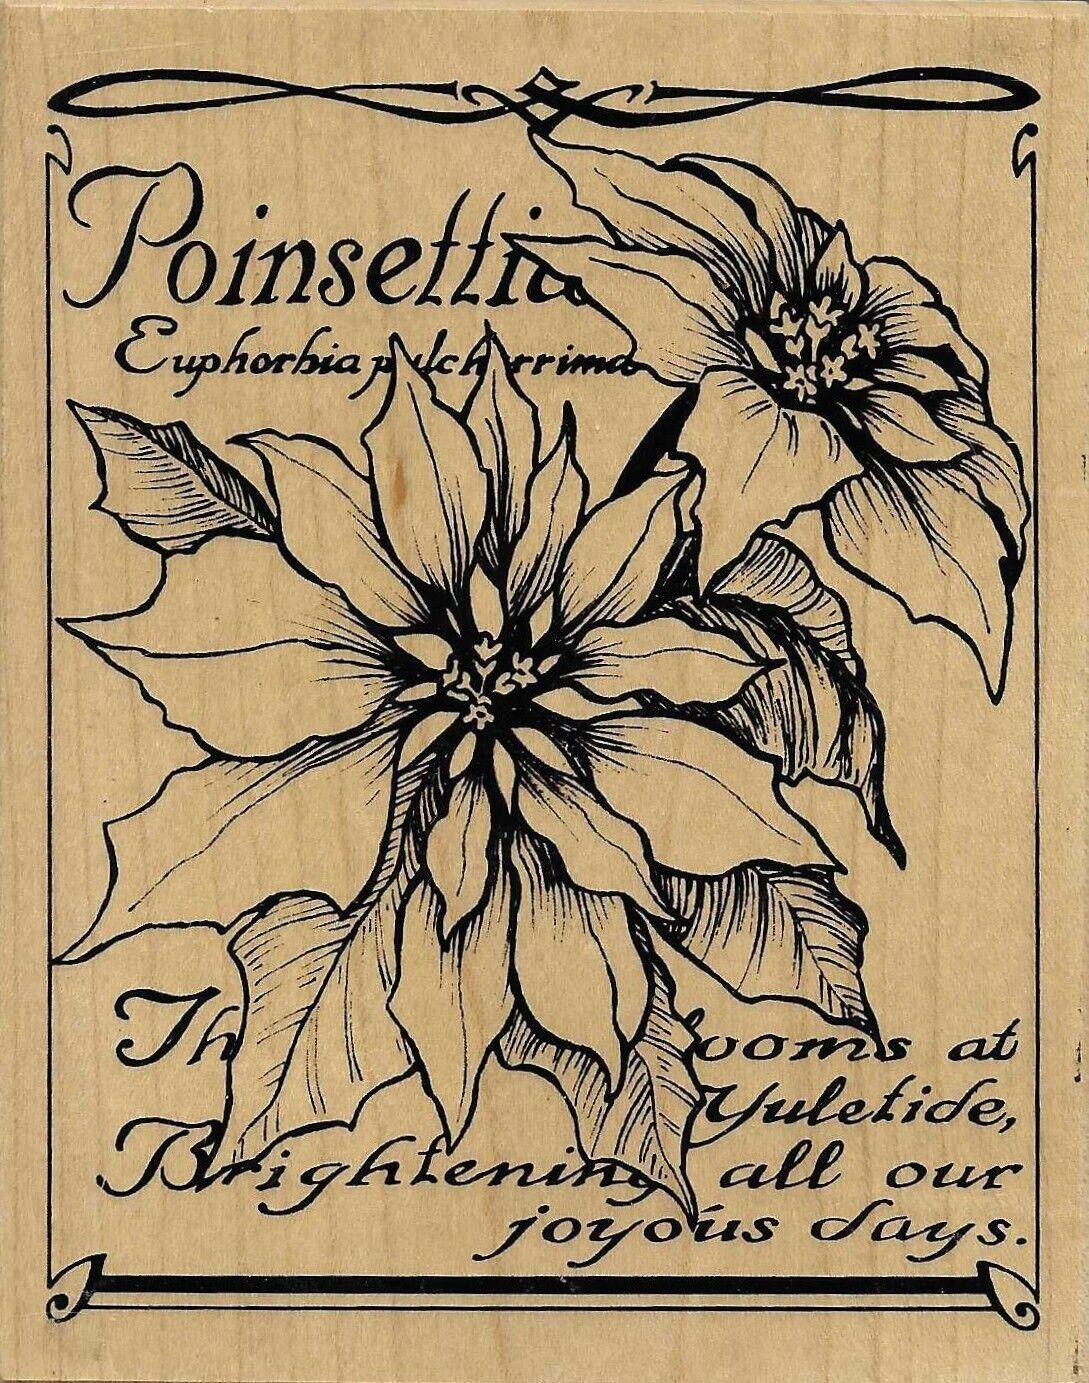 Poinsettia
Euphorbia pulcherrima
Th ooms at
Yuletide,
Brightening all our
joyous days.